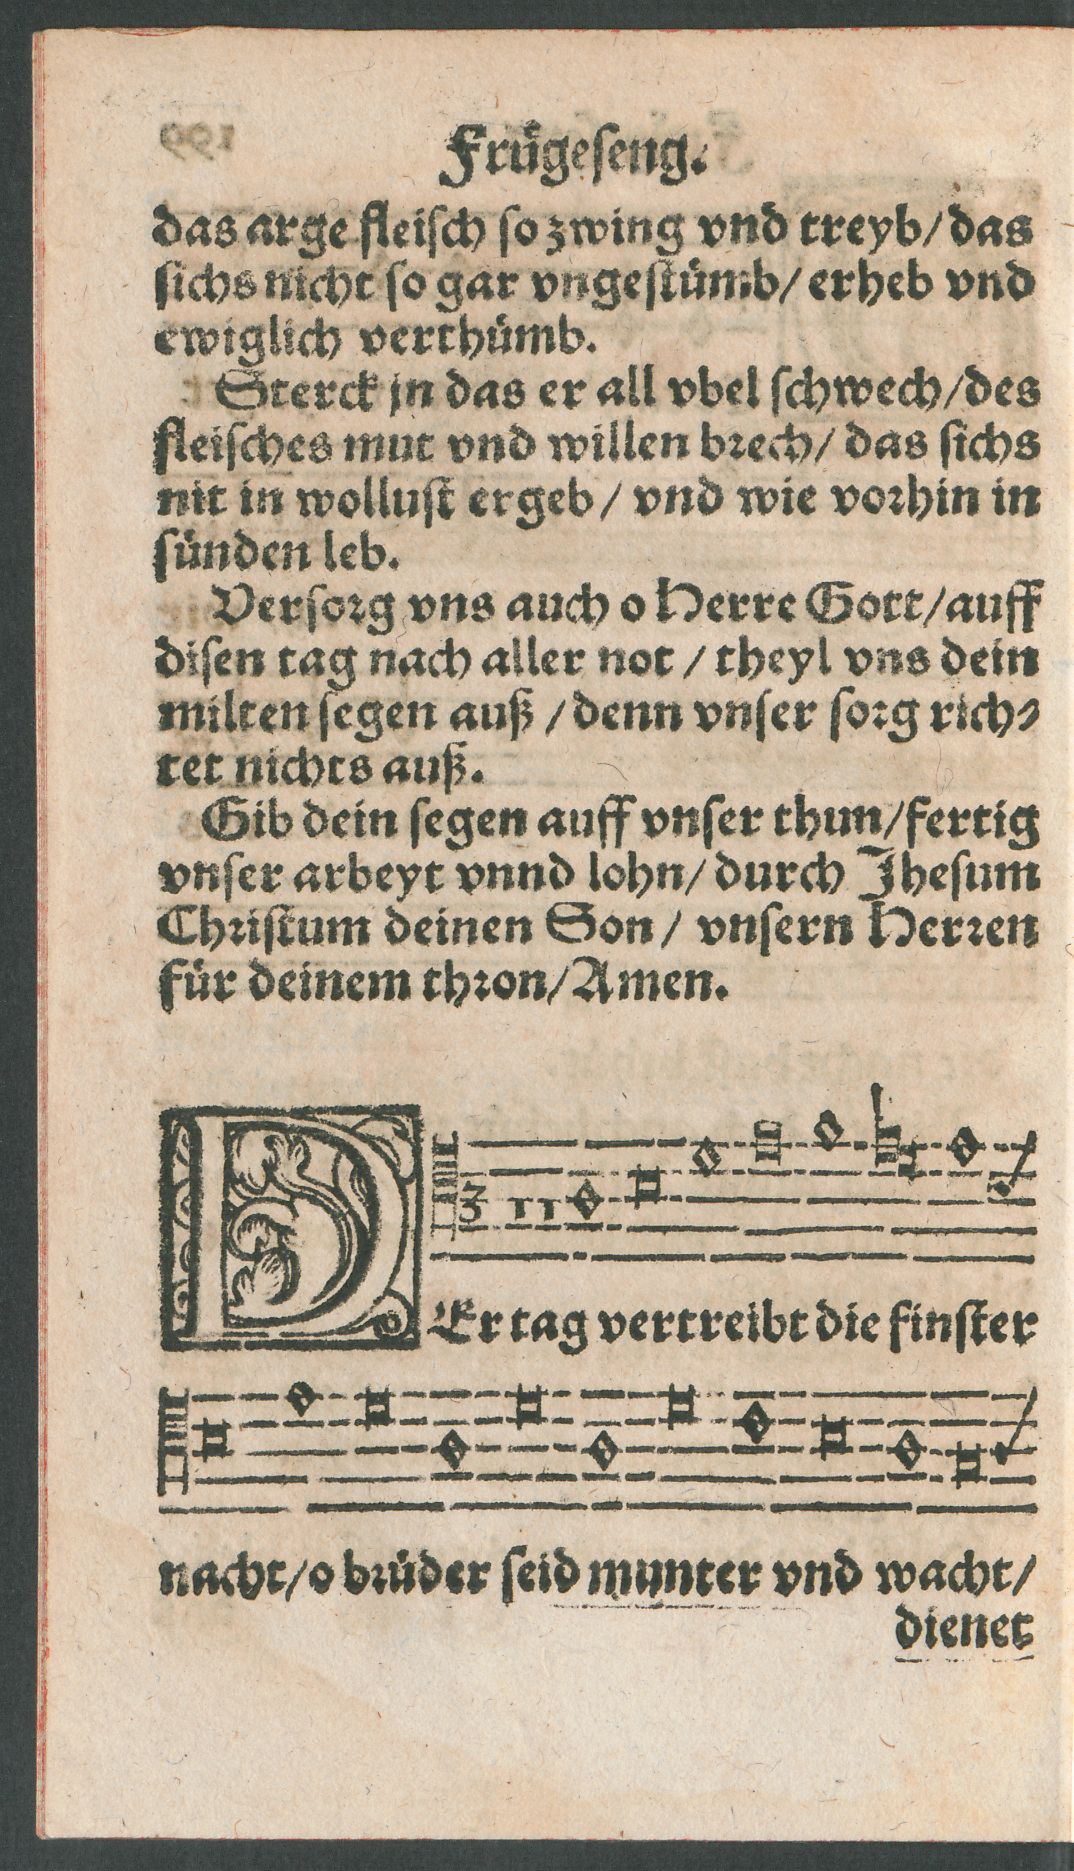 Frügeseng.
das arge fleisch so zwing vnd treyb/das
sichs nicht so gar vngestümb/ erheb vnd
ewiglich verthümb.
Sterck jn das er all vbel schwech/des
fleisches mut vnd willen brech/ das sichs
nit in wollust ergeb / vnd wie vorhin in
sünden leb.
Versorg vns auch o Herre Gott/auff
disen tag nach aller not / theyl vns dein
milten segen auß /denn vnser sorg rich⸗
tet nichts auß.
Gib dein segen auff vnser thun/fertig
vnser arbeyt vnnd lohn/ durch Jhesum
Christum deinen Son / vnsern Herren
für deinem thron/Amen.
DEr tag vertreibt die finster
nacht/o brüder seid munter vnd wacht/
dienet